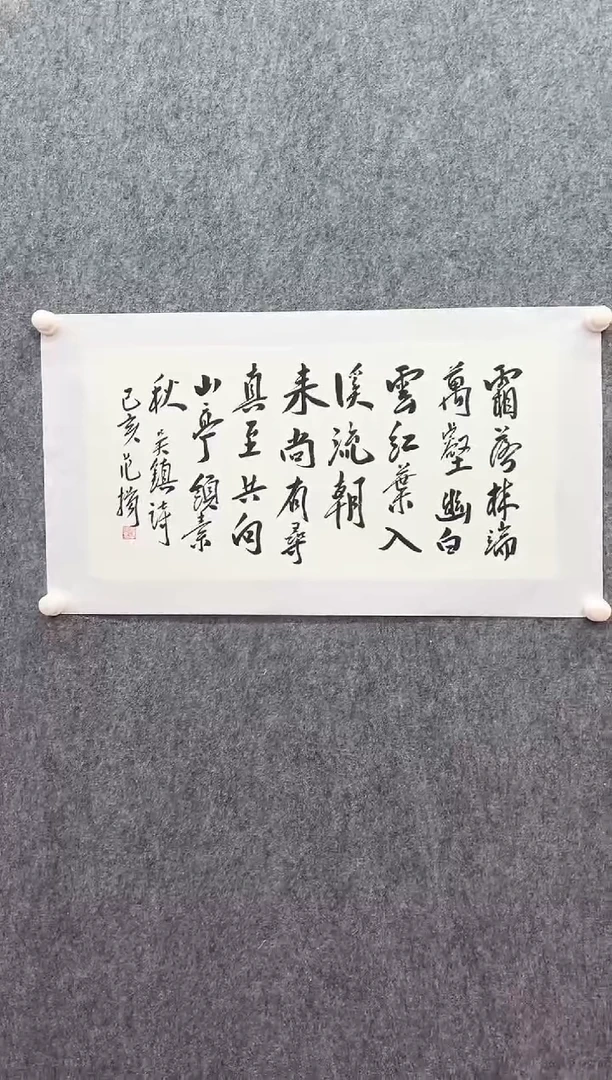 霜落林端
萬壑幽白
雲紅葉入
溪流朝
来尚有尋
真至共向
山亭頌素
秋 吴鎮詩
己亥 范